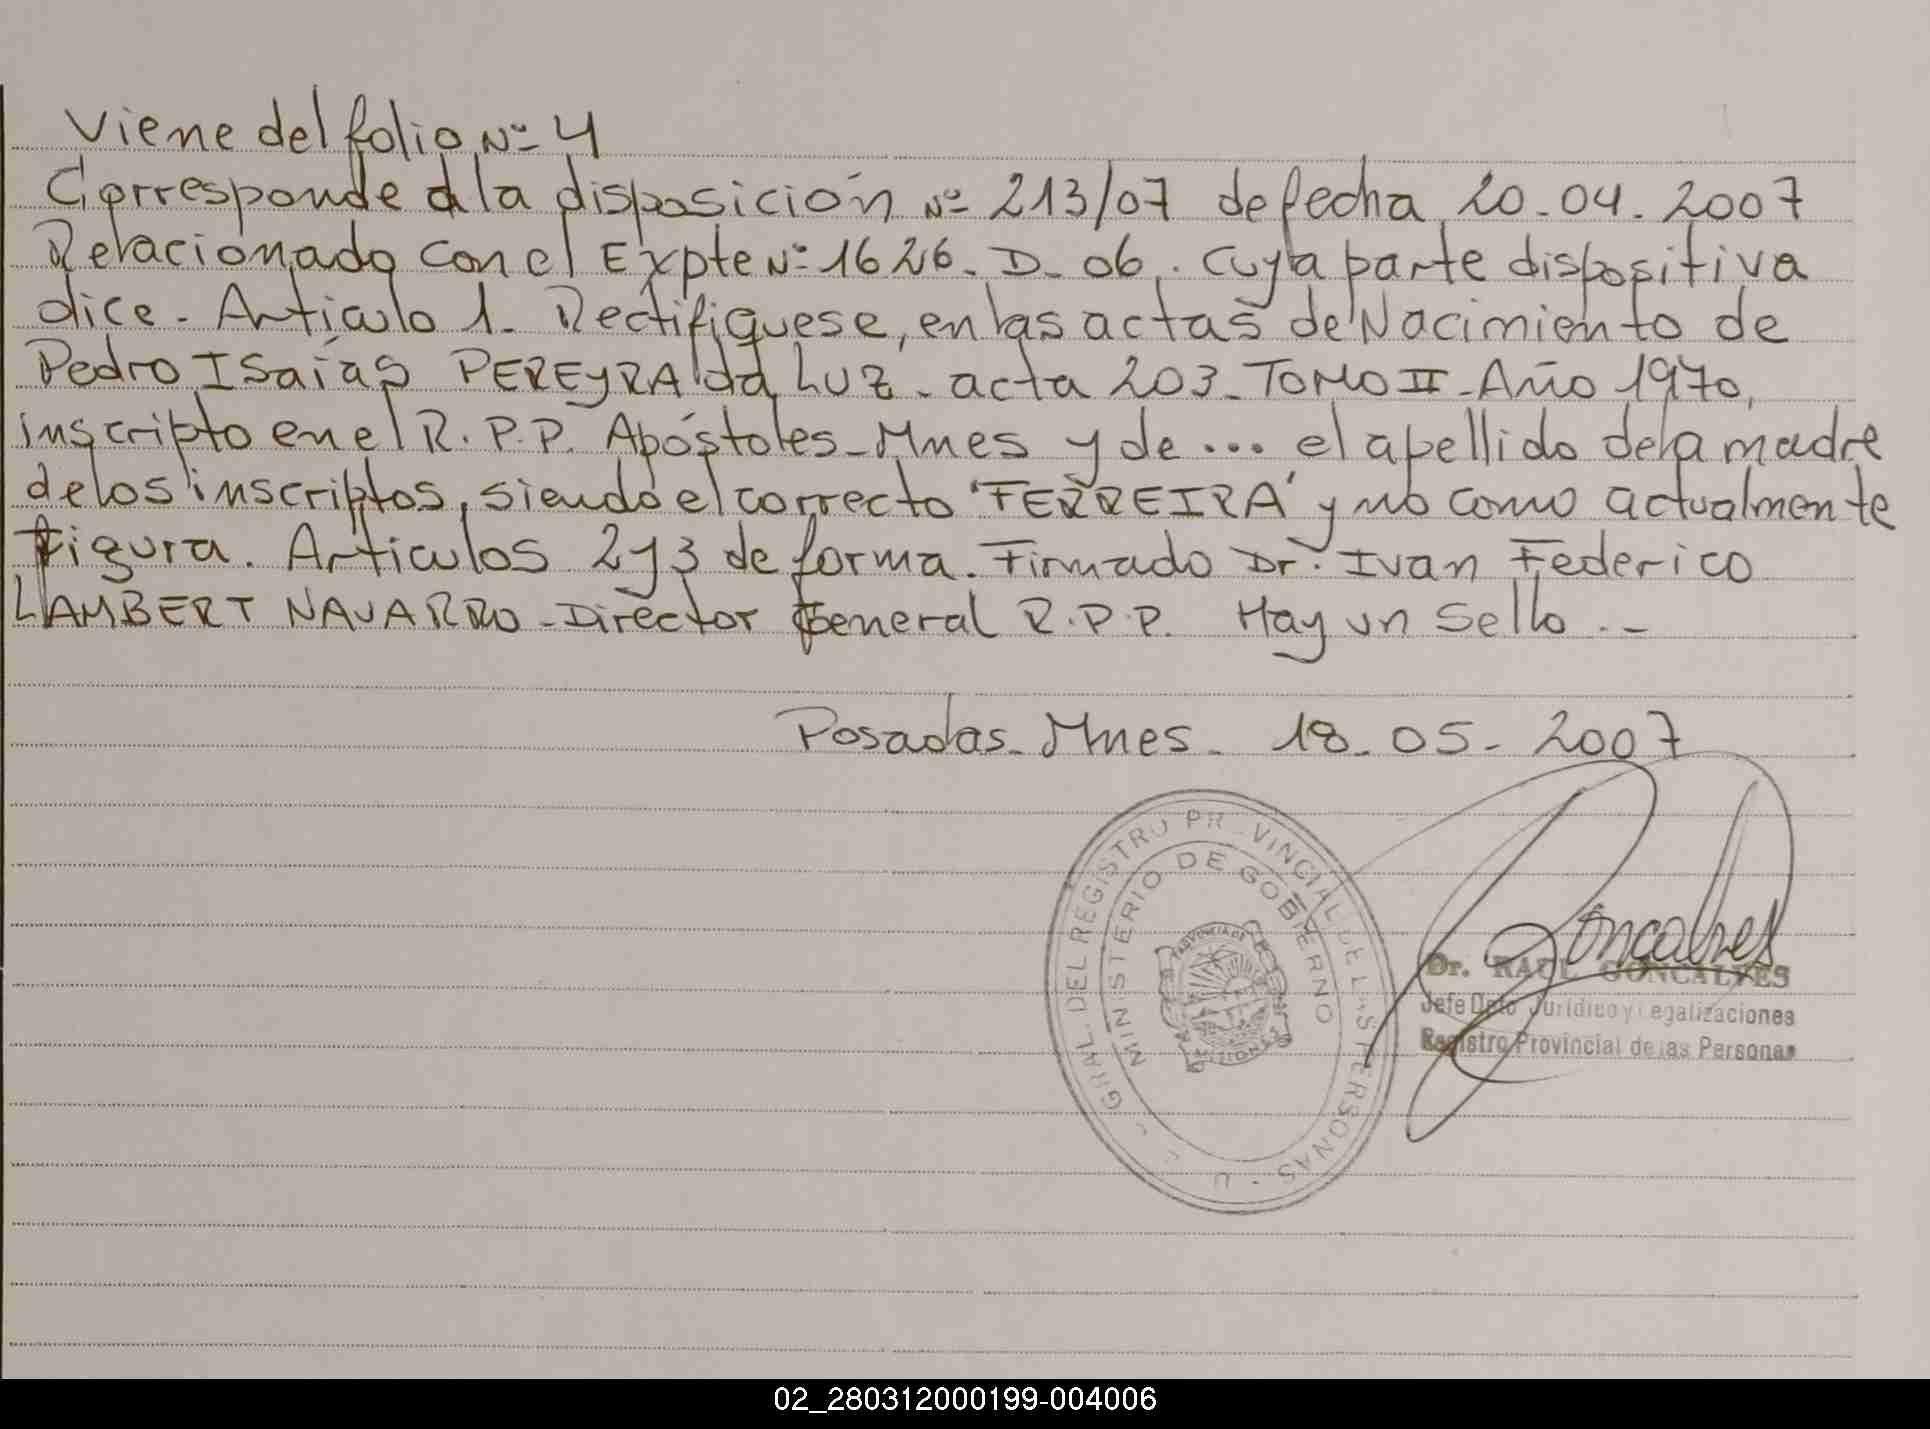 Viene del folio Nº 4
Corresponde a la disposición Nº 213/07 de fecha 20.04.2007
Relacionado con el Expte Nº 1626. D. 06. Cuya parte dispositiva
dice. Articulo 1. Rectifiquese, en las actas de Nacimiento de
Pedro Isaías PEREYRA da LUZ. acta 203. TOMO II. Año 1970,
inscripto en el R.P.P. Apóstoles. Mnes y de ... el apellido de la madre
de los inscriptos, siendo el correcto 'FERREIRA' y no como actualmente
figura. Articulos 2 y 3 de forma. Firmado Dr. Ivan Federico
LAMBERT NAVARRO - Director General R.P.P. Hay un sello . -
Posadas. Mnes. 18.05.2007
GRAL DEL REGISTRO PROVINCIAL DE LAS PERSONAS
MINISTERIO DE GOBIERNO
PROVINCIA DE
MISIONES
Goncalves
Dr. RAUL GONCALVES
Jefe Dpto Jurídico y Legalizaciones
Registro Provincial de las Personas
02_280312000199-004006